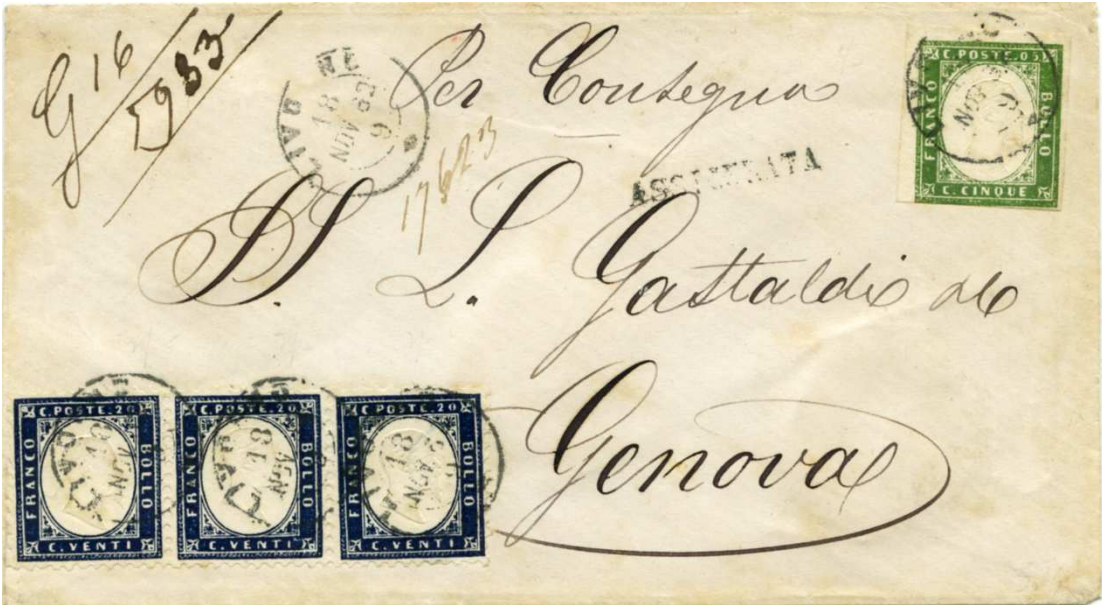 G 16
5983
Per Consegna
17623
ASSICURATA
C. POSTE. 05
FRANCO
BOLLO
C. CINQUE
18
NOV
62
S. L. Gastaldi
Genova
C. POSTE. 20
FRANCO
BOLLO
C. VENTI
C. POSTE. 20
FRANCO
BOLLO
C. VENTI
C. POSTE. 20
FRANCO
BOLLO
C. VENTI
18
NOV
18
NOV